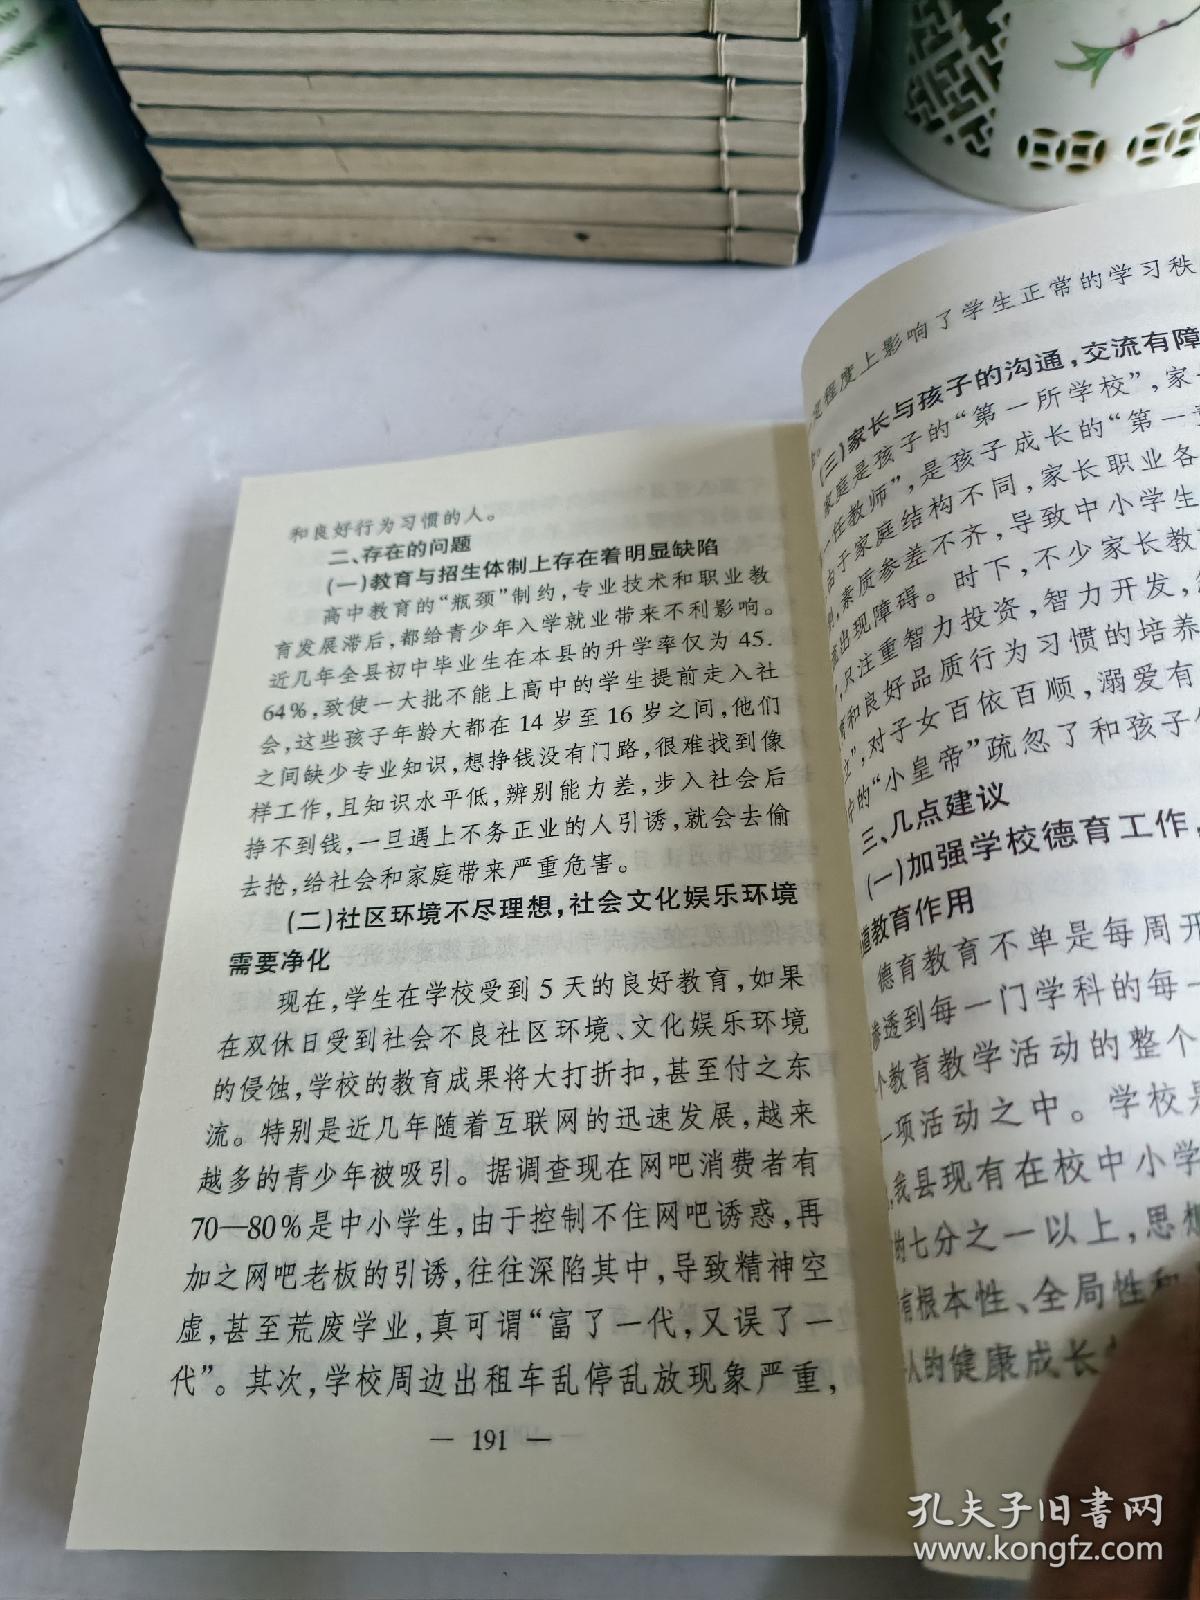 和良好行为习惯的人。
二、存在的问题
(一)教育与招生体制上存在着明显缺陷
高中教育的“瓶颈”制约，专业技术和职业教
育发展滞后，都给青少年入学就业带来不利影响。
近几年全县初中毕业生在本县的升学率仅为 45.
64%，致使一大批不能上高中的学生提前走入社
会，这些孩子年龄大都在 14 岁至 16 岁之间，他们
之间缺少专业知识，想挣钱没有门路，很难找到像
样工作，且知识水平低，辨别能力差，步入社会后
挣不到钱，一旦遇上不务正业的人引诱，就会去偷
去抢，给社会和家庭带来严重危害。
(二)社区环境不尽理想，社会文化娱乐环境
需要净化
现在，学生在学校受到 5 天的良好教育，如果
在双休日受到社会不良社区环境、文化娱乐环境
的侵蚀，学校的教育成果将大打折扣，甚至付之东
流。特别是近几年随着互联网的迅速发展，越来
越多的青少年被吸引。据调查现在网吧消费者有
70—80%是中小学生，由于控制不住网吧诱惑，再
加之网吧老板的引诱，往往深陷其中，导致精神空
虚，甚至荒废学业，真可谓“富了一代，又误了一
代”。其次，学校周边出租车乱停乱放现象严重，
— 191 —
程度上影响了学生正常的学习秩
(三)家长与孩子的沟通，交流有障
家庭是孩子的“第一所学校”，家
一任教师”，是孩子成长的“第一
由于家庭结构不同，家长职业各
素质参差不齐，导致中小学生
出现障碍。时下，不少家长教
，只注重智力投资，智力开发，
和良好品质行为习惯的培养
”，对子女百依百顺，溺爱有
的“小皇帝”疏忽了和孩子
三、几点建议
(一)加强学校德育工作，
教育作用
德育教育不单是每周开
渗透到每一门学科的每一
个教育教学活动的整个
一项活动之中。学校是
，我县现有在校中小学
的七分之一以上，思想
有根本性、全局性和
人的健康成长
孔夫子旧书网
www.kongfz.com